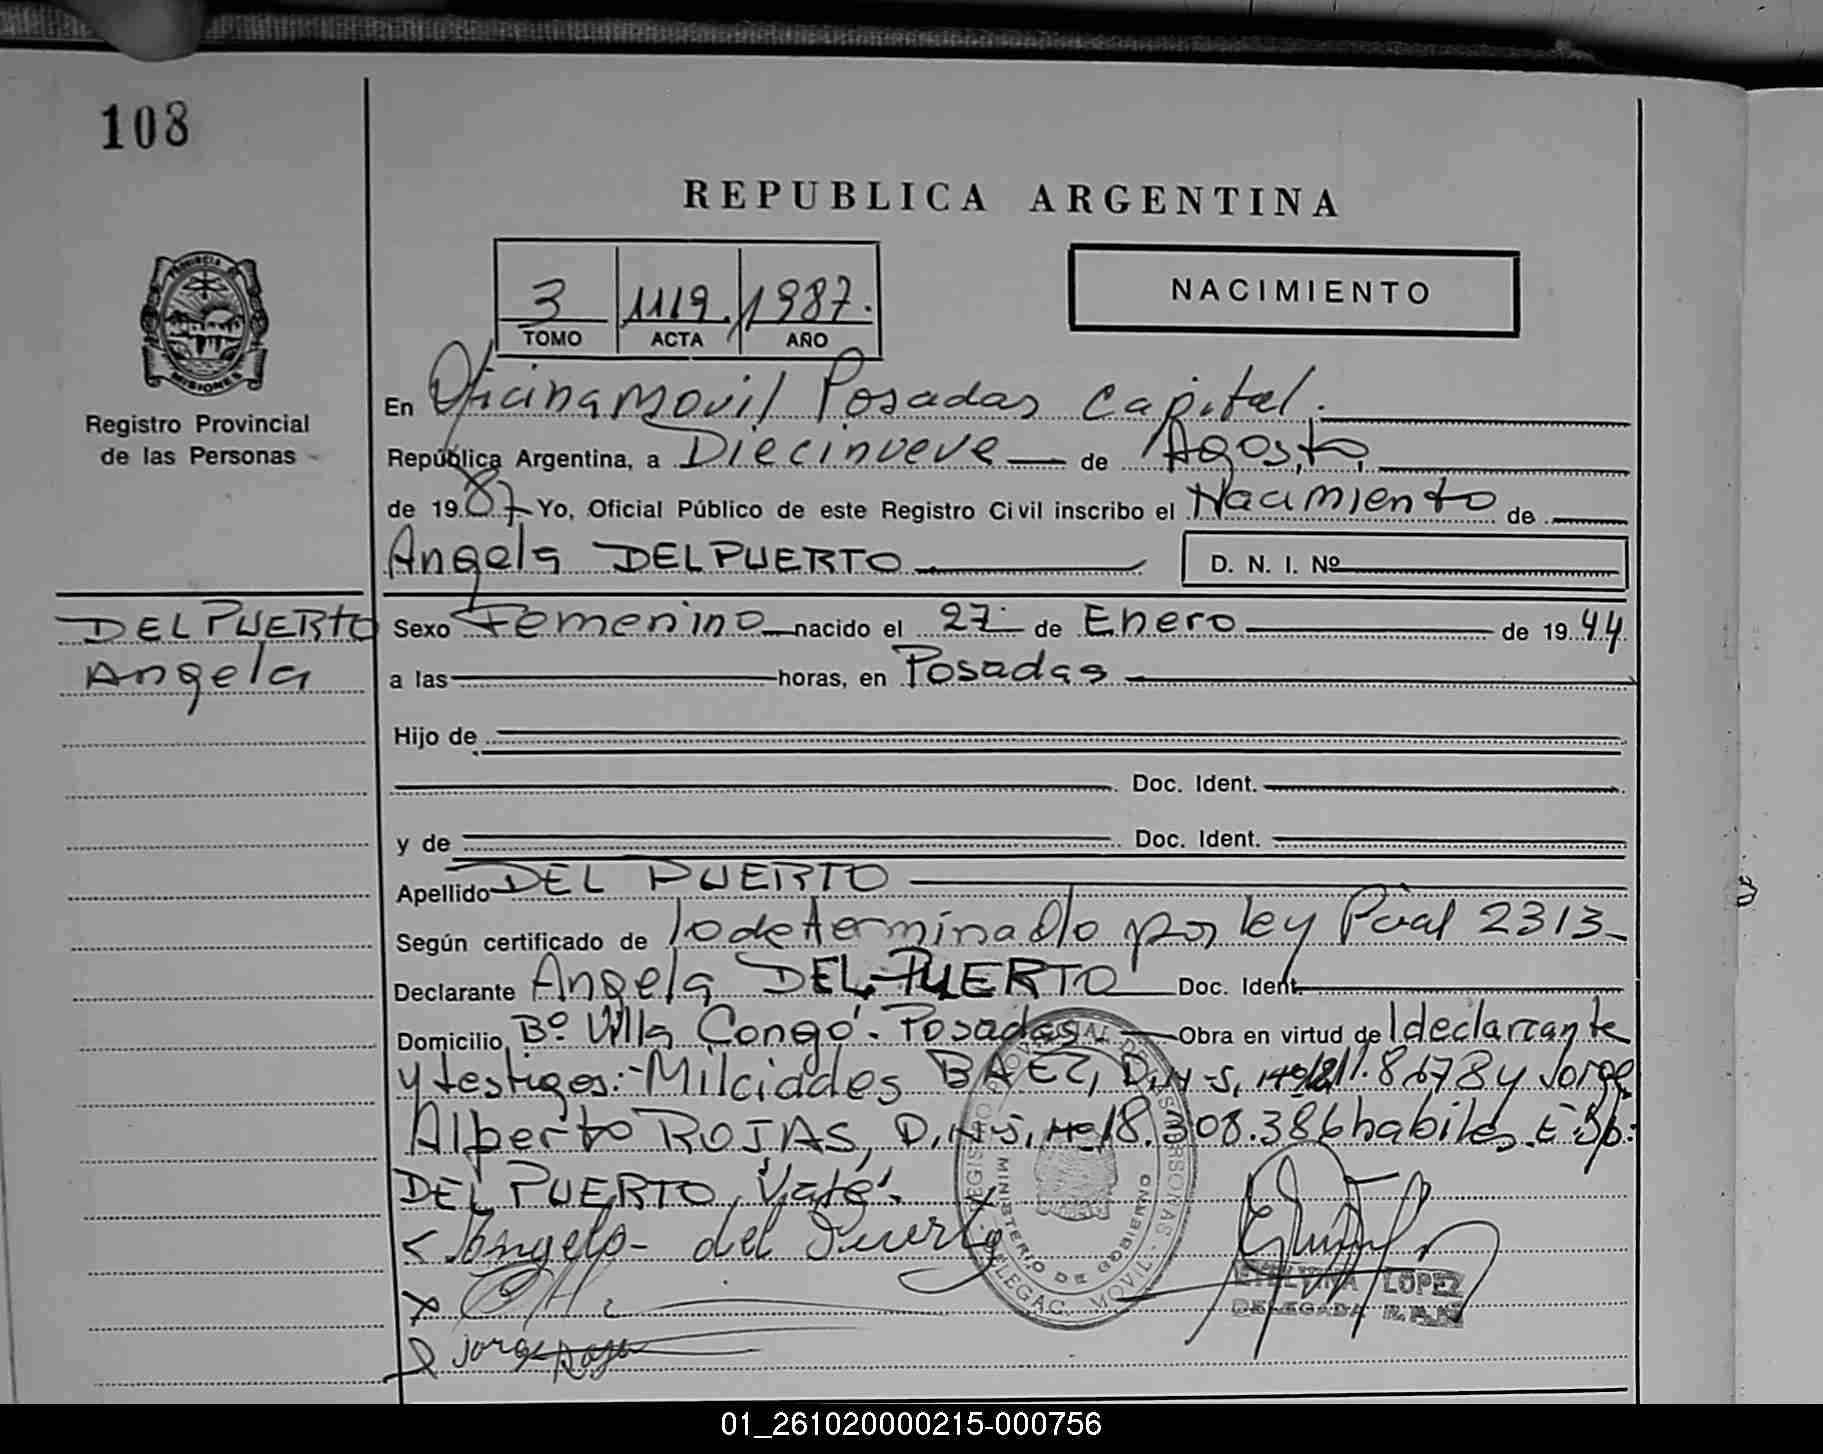 108
REPUBLICA ARGENTINA
3 1119. 1987.
TOMO ACTA AÑO
NACIMIENTO
PROVINCIA DE MISIONES
Registro Provincial
de las Personas
En Oficina Movil Posadas Capital.
República Argentina, a Diecinueve de Agosto
de 1987 Yo, Oficial Público de este Registro Civil inscribo el Nacimiento de
Angela DEL PUERTO D. N. I. Nº
DEL PUERTO
Angela
Sexo Femenino nacido el 27 de Enero de 1944
a las horas, en Posadas
Hijo de
Doc. Ident.
y de Doc. Ident.
Apellido DEL PUERTO
Según certificado de lo determinado por ley Pcial 2313
Declarante Angela DEL PUERTO Doc. Ident.
Domicilio Bº Villa Congó. Posadas Obra en virtud de l declarante
y testigos:- Milciades BAEZ, D.N.I. Nº y Jorge
Alberto ROJAS, D.N.I. Nº 18.308.386 habiles. E
DEL PUERTO, Vale.
Angela del Puerto
Jorge Rojas
REGISTRO PROVINCIAL DE LAS PERSONAS
MINISTERIO DE GOBIERNO
DELEGAC. MOVIL
ETELVINA LOPEZ
DELEGADA
01_261020000215-000756